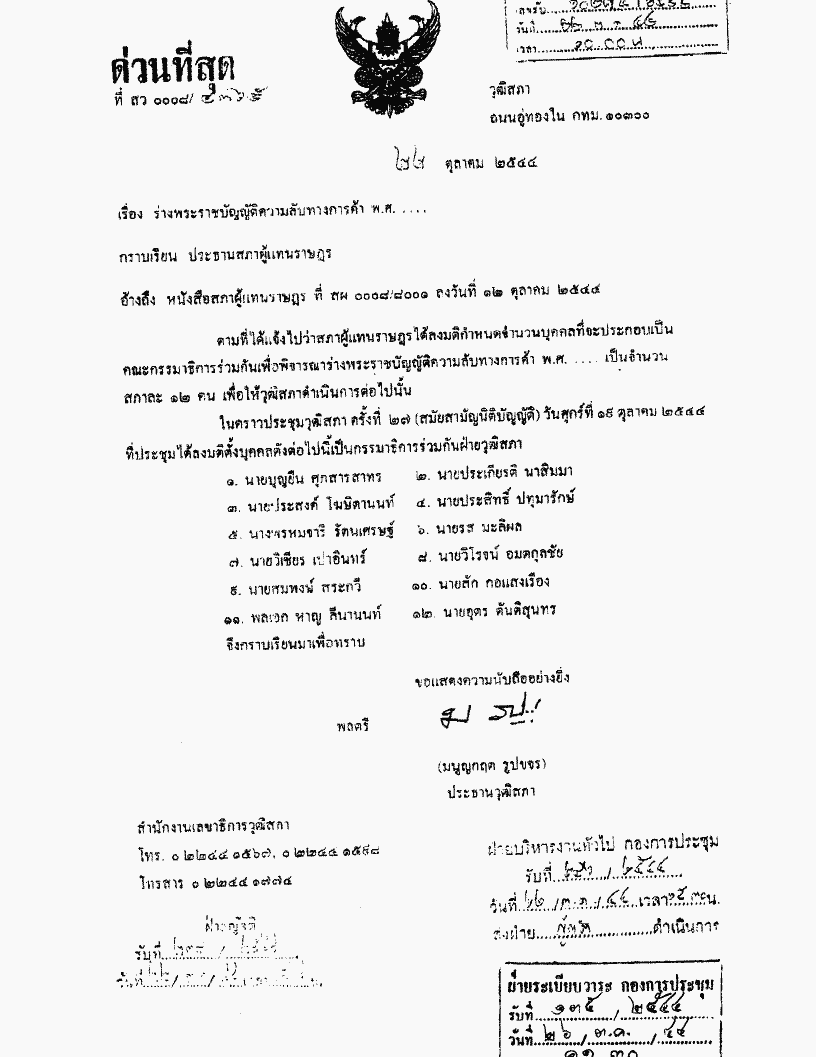 ด่วนที่สุด
ที่ สว ๐๐๐๘/
วุฒิสภา
ถนนอู่ทองใน กทม. ๑๐๓๐๐
๒๒ ตุลาคม ๒๕๔๔
เรื่อง ร่างพระราชบัญญัติความลับทางการค้า พ.ศ. ....
กราบเรียน ประธานสภาผู้แทนราษฎร
อ้างถึง หนังสือสภาผู้แทนราษฎร ที่ สผ ๐๐๐๘/๘๐๐๑ ลงวันที่ ๑๒ ตุลาคม ๒๕๔๔
ตามที่ได้แจ้งไปว่าสภาผู้แทนราษฎรได้ลงมติกำหนดจำนวนบุคคลที่จะประกอบเป็น
คณะกรรมาธิการร่วมกันเพื่อพิจารณาร่างพระราชบัญญัติความลับทางการค้า พ.ศ. .... เป็นจำนวน
สภาละ ๑๒ คน เพื่อให้วุฒิสภาดำเนินการต่อไปนั้น
ในคราวประชุมวุฒิสภา ครั้งที่ ๒๗ (สมัยสามัญนิติบัญญัติ) วันศุกร์ที่ ๑๙ ตุลาคม ๒๕๔๔
ที่ประชุมได้ลงมติตั้งบุคคลดังต่อไปนี้เป็นกรรมาธิการร่วมกันฝ่ายวุฒิสภา
๑. นายบุญยืน ศุภสารสาทร ๒. นายประเกียรติ นาสิมมา
๓. นายประสงค์ โฆษิตานนท์ ๔. นายประสิทธิ์ ปทุมารักษ์
๕. นางพรหมจารี รัตนเศรษฐ์ ๖. นายรส มะลิผล
๗. นายวิเชียร เปาอินทร์ ๘. นายวิโรจน์ อมตกุลชัย
๙. นายสมพงษ์ สระกวี ๑๐. นายสัก กอแสงเรือง
๑๑. พลเอก หาญ ลีนานนท์ ๑๒. นายอุดร ตันติสุนทร
จึงกราบเรียนมาเพื่อทราบ
ขอแสดงความนับถืออย่างยิ่ง
พลตรี
(มนูญกฤต รูปขจร)
ประธานวุฒิสภา
สำนักงานเลขาธิการวุฒิสภา
โทร. ๐ ๒๒๔๔ ๑๕๖๗, ๐ ๒๒๔๔ ๑๕๙๘
โทรสาร ๐ ๒๒๔๔ ๑๗๗๔
ฝ่ายบริหารงานทั่วไป กองการประชุม
รับที่ / ๒๕๔๔
วันที่ ๒๒ / ต.ค. / ๔๔ เวลา น.
ส่งฝ่าย ดำเนินการ
ฝ่ายญัตติ
รับที่
วันที่
ฝ่ายระเบียบวาระ กองการประชุม
รับที่ ๑๓๕ / ๒๕๔๔
วันที่ ๒๖ / ต.ค. / ๔๔